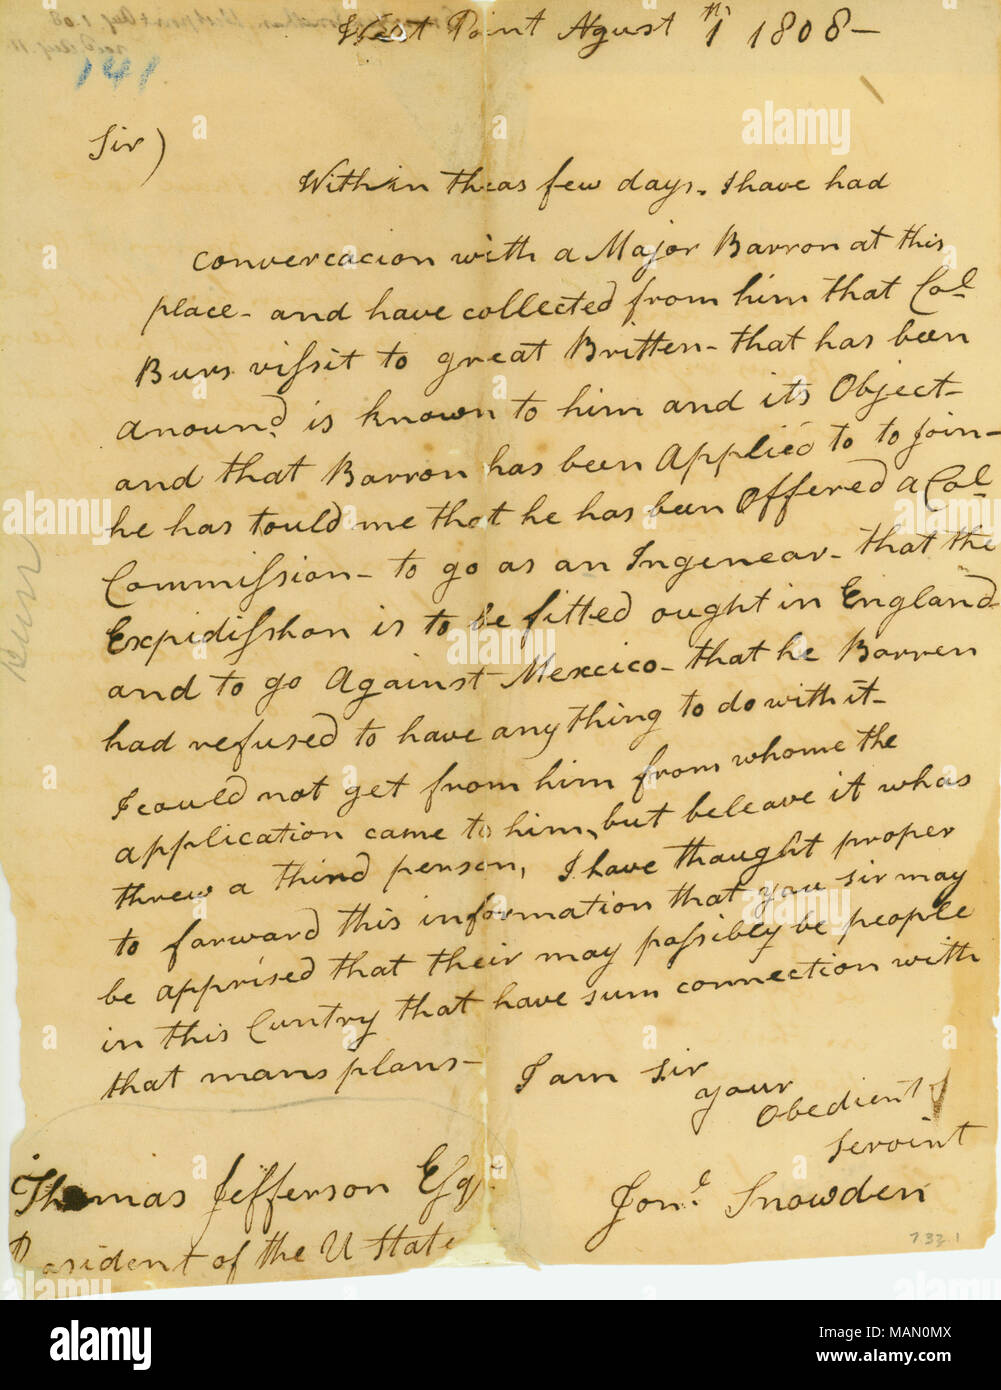 West Point Agust 1th 1808 —
141
Sir)
Within theas few days. I have had
convercacion with a Major Barron at this
place - and have collected from him that Col
Burs vissit to great Britten - that has been
anound. is known to him and its Object -
and that Barron has been Applied to to join -
he has tould me that he has been Offered a Col
Commission - to go as an Ingenear - that the
Expidisshon is to be fitted ought in England
and to go Against Mexcico - that he Barren
had refused to have any thing to do with it -
I could not get from him from whome the
application came to him, but beleave it whas
threw a third person, I have thaught proper
to forward this information that you sir may
be apprised that their may possibely be people
in this Cuntry that have sum connection with
that mans plans -
I am sir
your
Obedient
Servint
Jon.e Snowden
Thomas Jefferson Esq.
President of the U State
Burr
7331
alamy
Image ID: MAN0MX
www.alamy.com